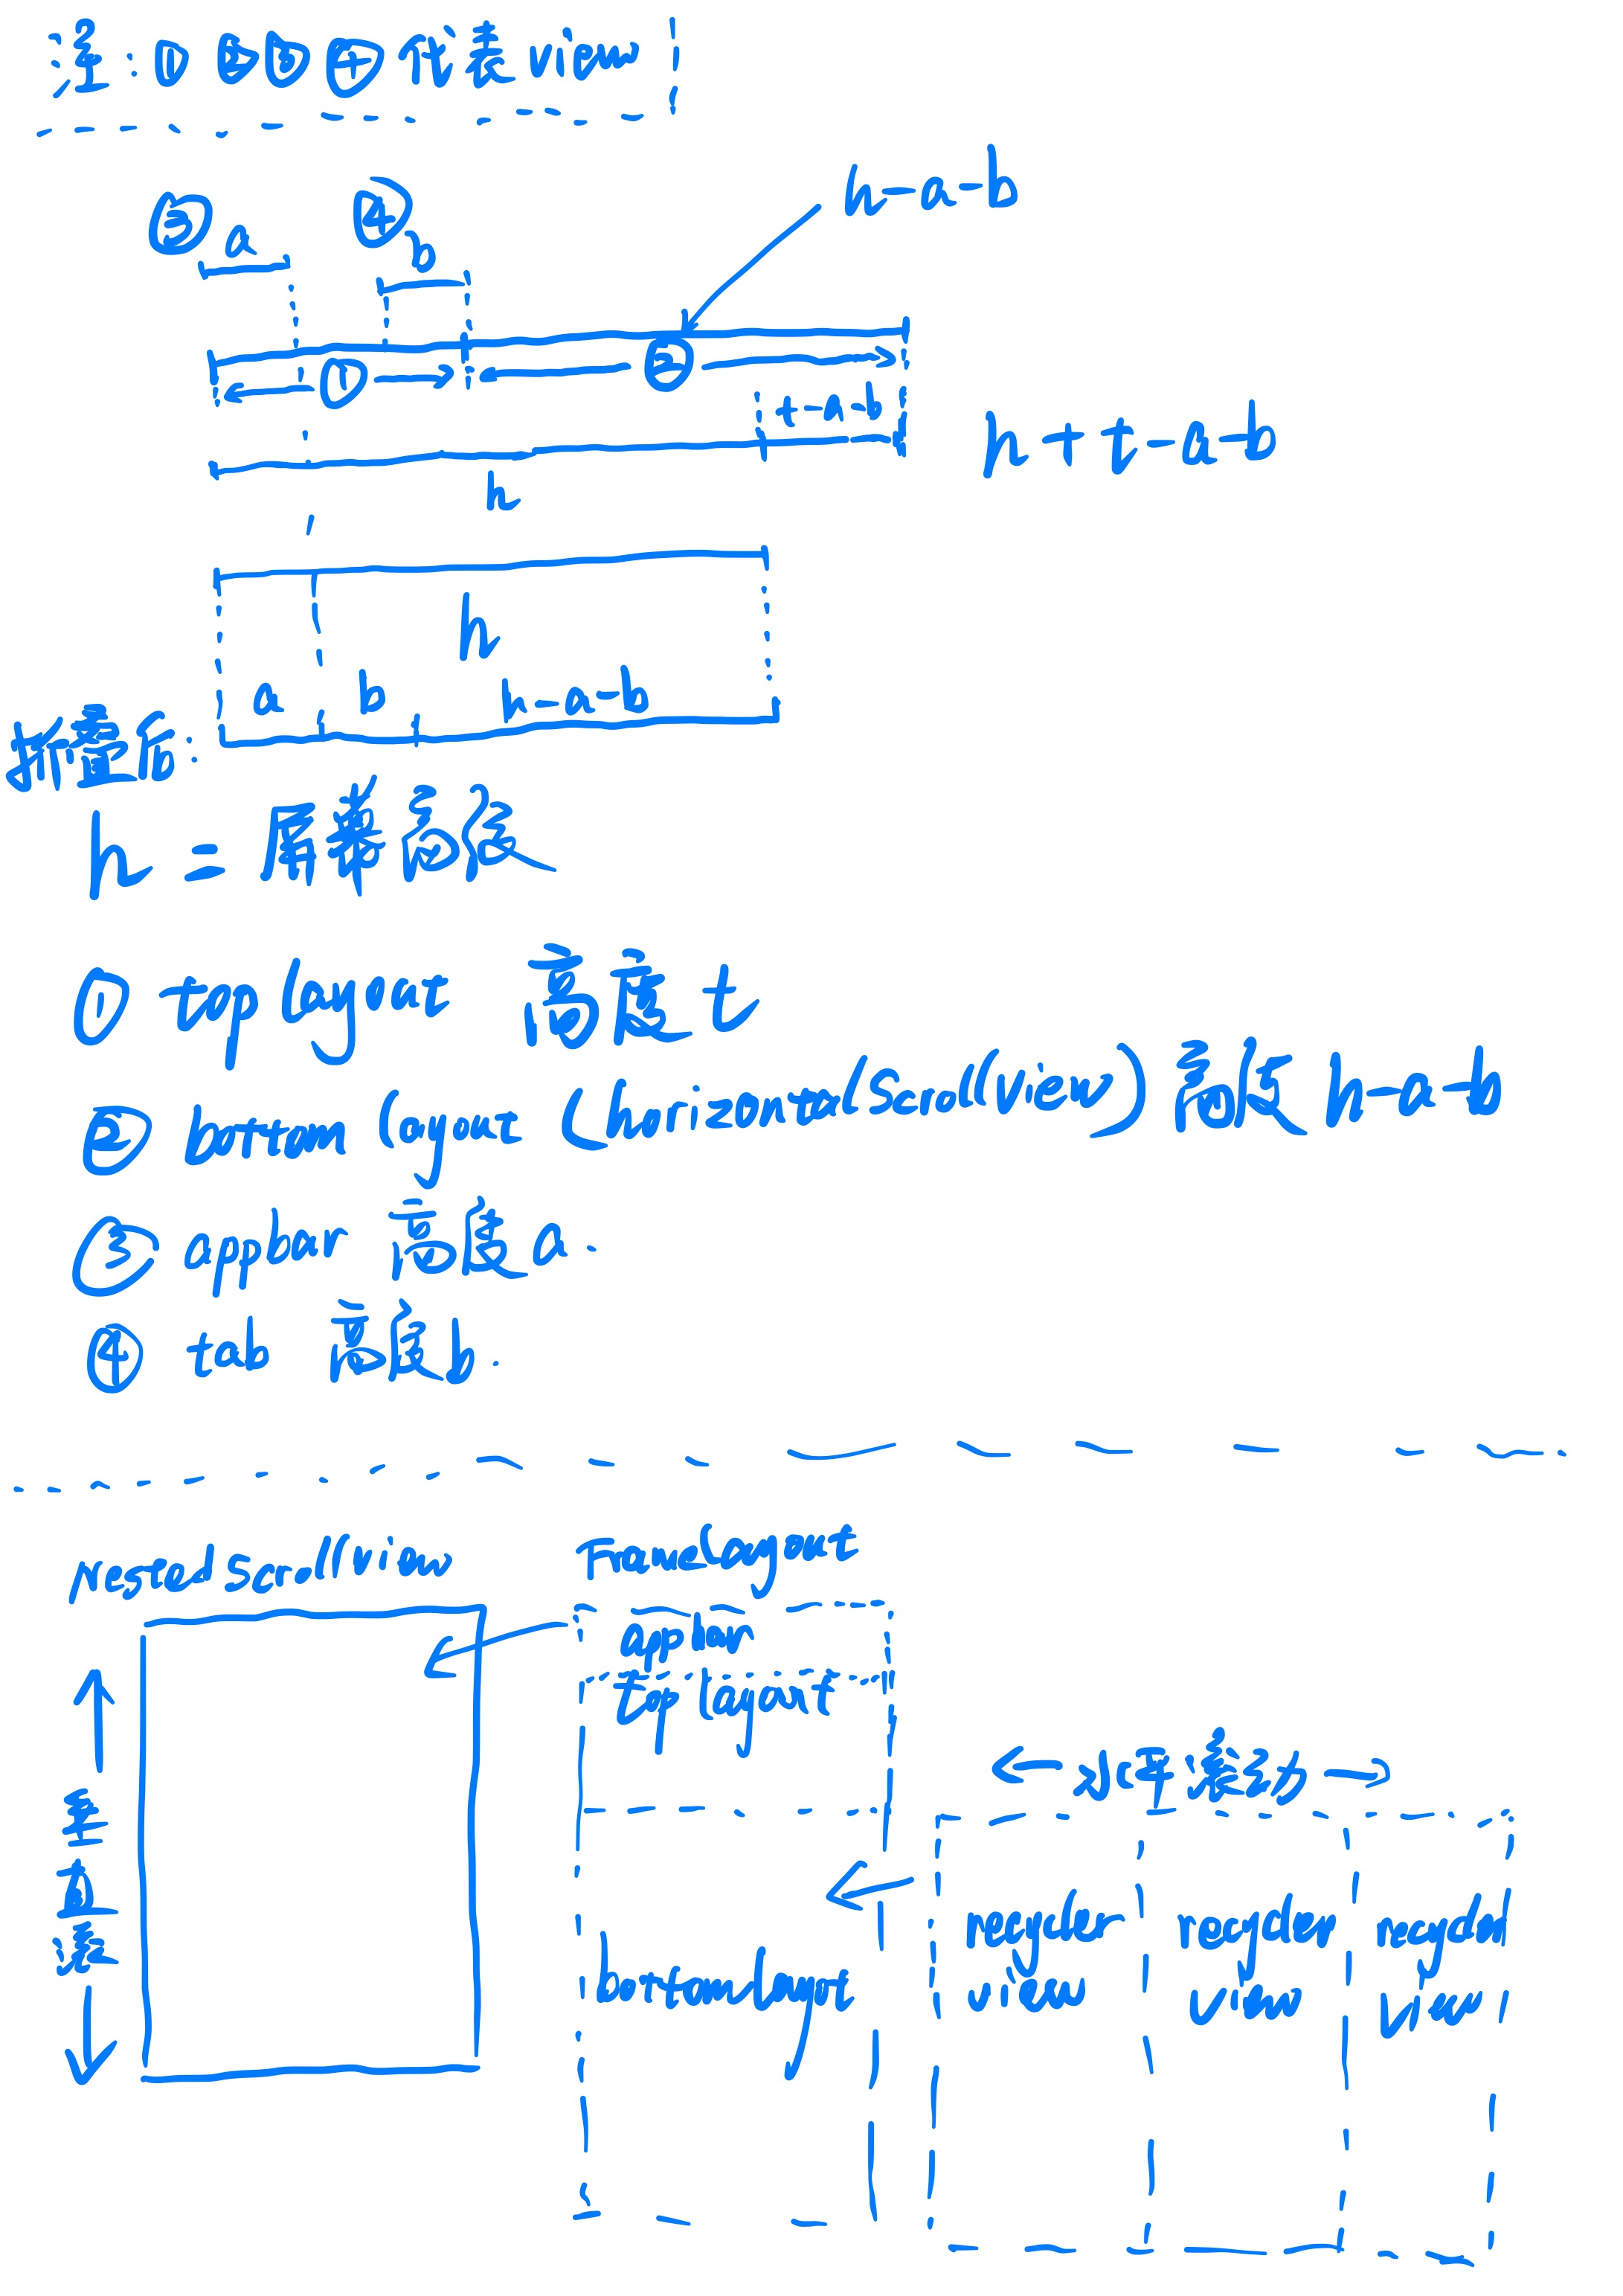 注：① ② ③ ④ 代表 view
③ a ④ b h-a-b
① ②
t-a-b h+t-a-b
h
h
a b h-a-b
折叠后：
h = 屏幕高度
① top layout 高度 t
② bottom layout (horizontal Scroll view) 高度 h-a-b
③ appbar 高度 a.
④ tab 高度 b.
Nested scroll view FrameLayout
appbar
top layout
← 水平滚动 →
垂直滚
bottom layout
recycler view recycler view recycler view